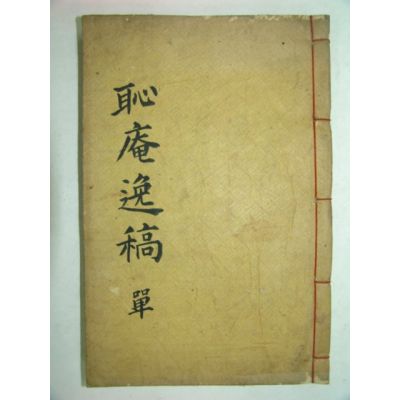 恥庵逸稿 單